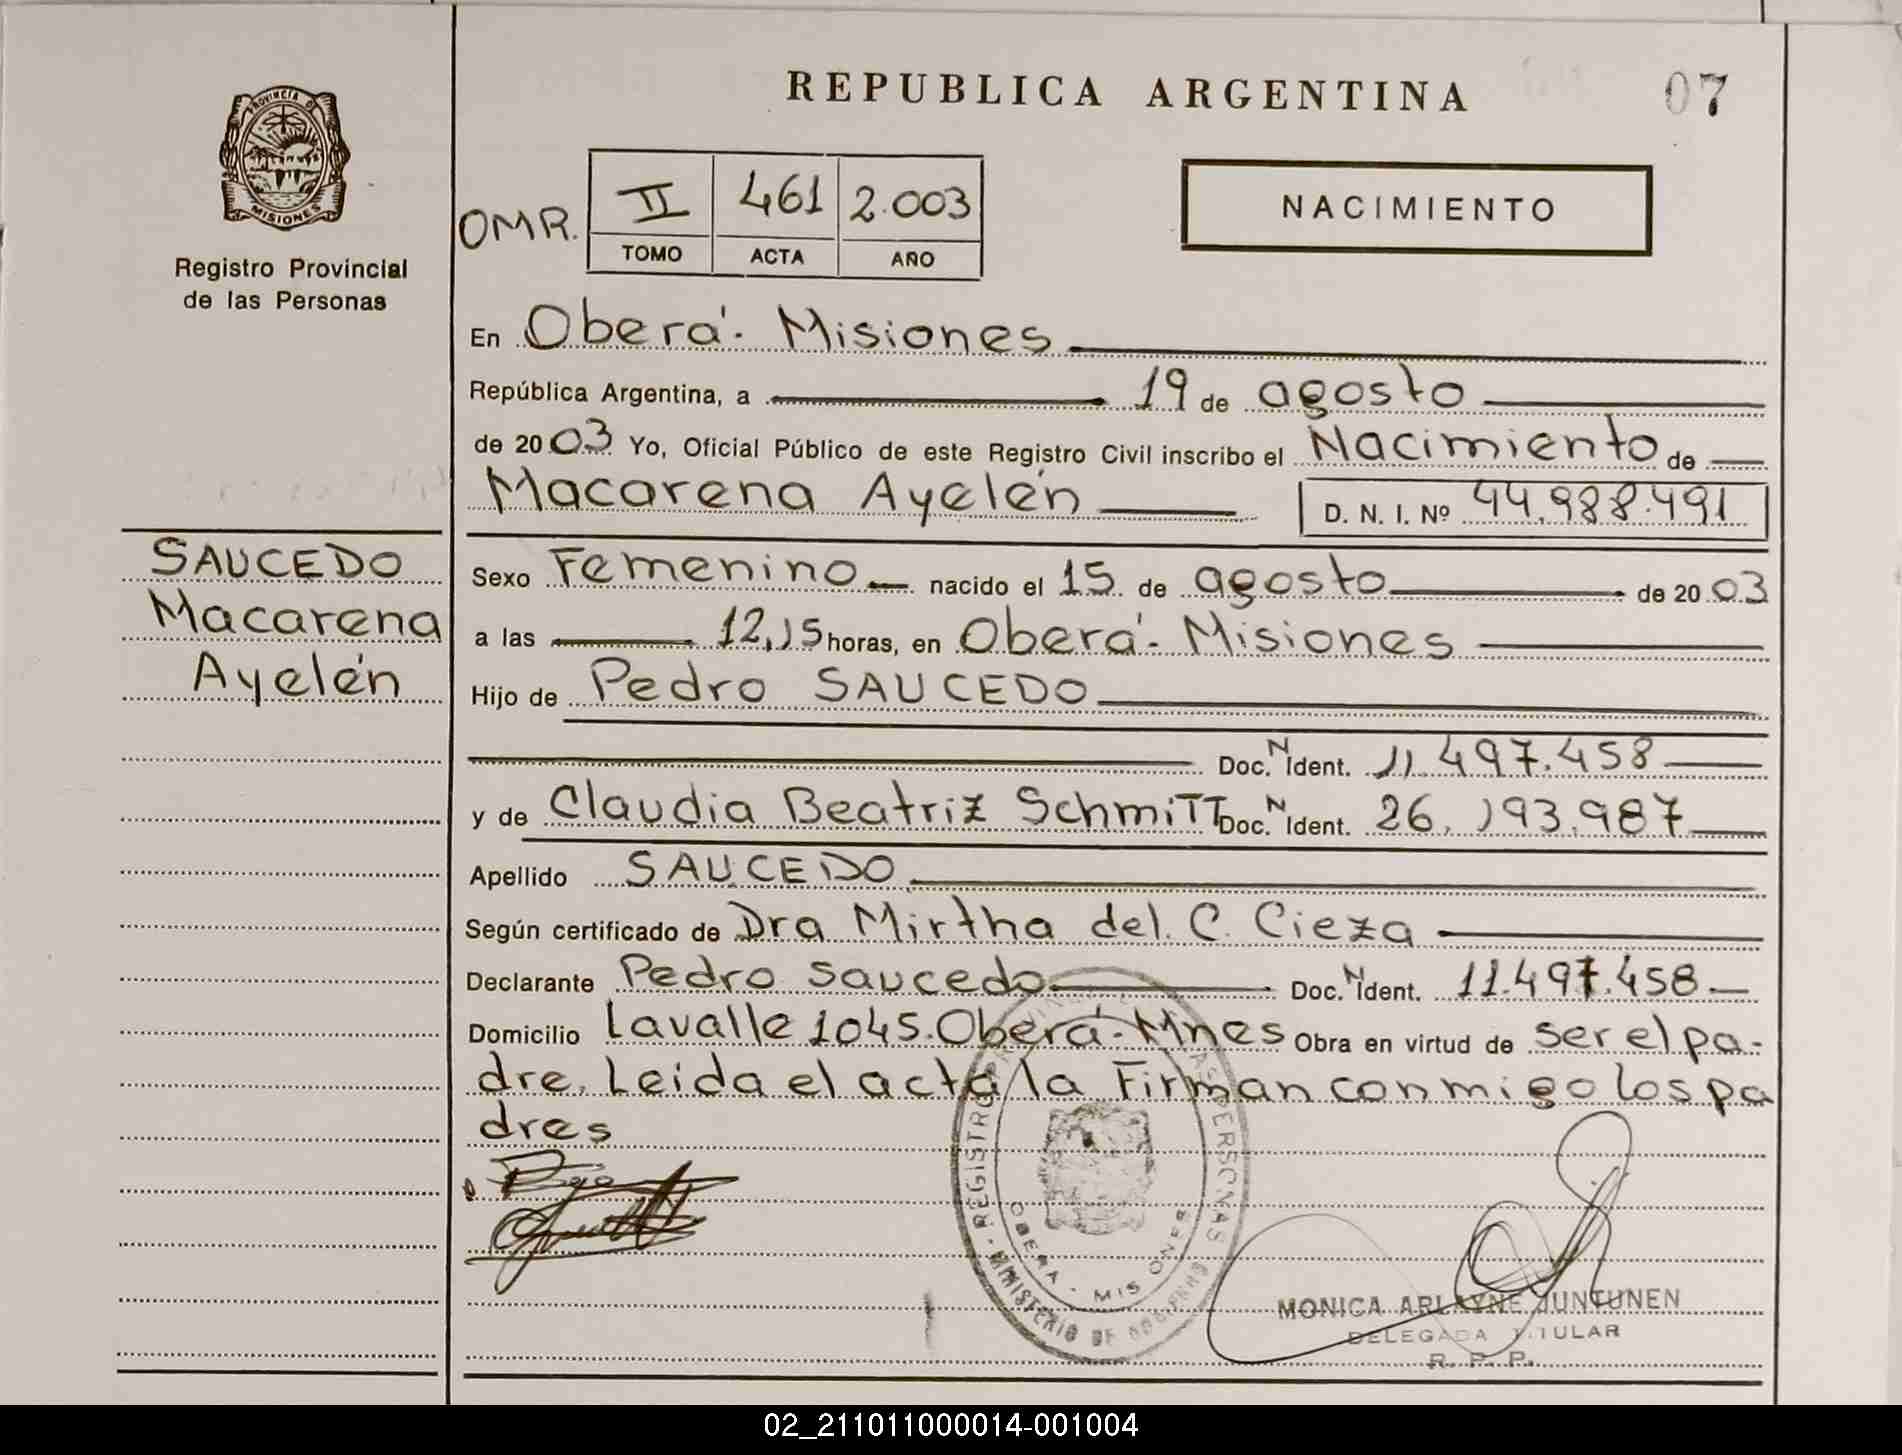 REPUBLICA ARGENTINA
07
PROVINCIA DE
MISIONES
Registro Provincial
de las Personas
OMR.
II 461 2.003
TOMO ACTA AÑO
NACIMIENTO
En Oberá - Misiones
República Argentina, a 19 de agosto
de 2003 Yo, Oficial Público de este Registro Civil inscribo el Nacimiento de
Macarena Ayelén D. N. I. Nº 44.988.491
SAUCEDO
Macarena
Ayelén
Sexo Femenino nacido el 15 de agosto de 2003
a las 12,15 horas, en Oberá - Misiones
Hijo de Pedro SAUCEDO
Doc. N Ident. 11.497.458
y de Claudia Beatriz SchmiTT Doc. N Ident. 26.193.987
Apellido SAUCEDO
Según certificado de Dra Mirtha del C. Cieza
Declarante Pedro Saucedo Doc. N Ident. 11.497.458
Domicilio Lavalle 1045. Oberá - Mnes Obra en virtud de ser el pa-
dre. Leida el acta la Firman conmigo los pa
dres
REGISTRO PROVINCIAL DE LAS PERSONAS
OBERA - MISIONES
MINISTERIO DE GOBIERNO
MONICA ARLAYNE JUNTUNEN
DELEGADA TITULAR
R. P. P.
02_211011000014-001004